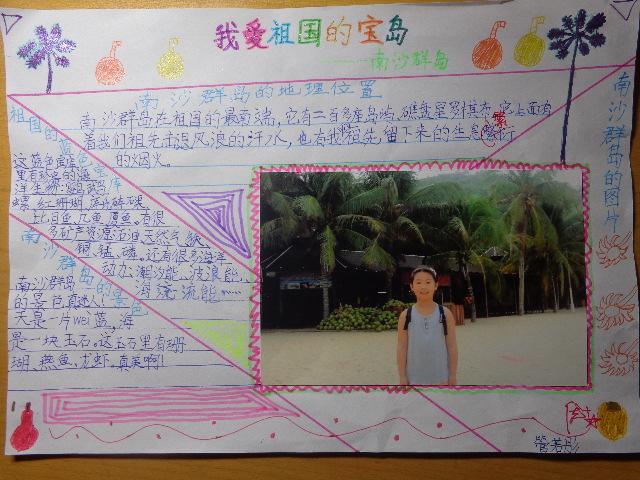 我爱祖国的宝岛
——南沙群岛
南沙群岛的地理位置
南沙群岛在祖国的最南端,它有二百多座岛屿,礁盘星罗棋布,它上面有
着我们祖先击退风浪的汗水,也有我们祖先留下来的生息繁衍
的烟火。
繁
南沙群岛的图片
祖国的蓝色宝库
这蓝色宝库
里有珍贵的海
洋生物:鹦鹉
螺、红珊瑚
比目鱼、几鱼
多矿产资源:石油、天然气、铁、
铜、锰、磷,还有很多海洋
动力:潮汐能、波浪能、
海流能……
南沙群岛的景色
南沙群岛
的景色真迷人!
天是一片wei蓝,海
是一块玉石。这玉石里有珊
瑚、燕鱼、龙虾。真美啊!
管若彤